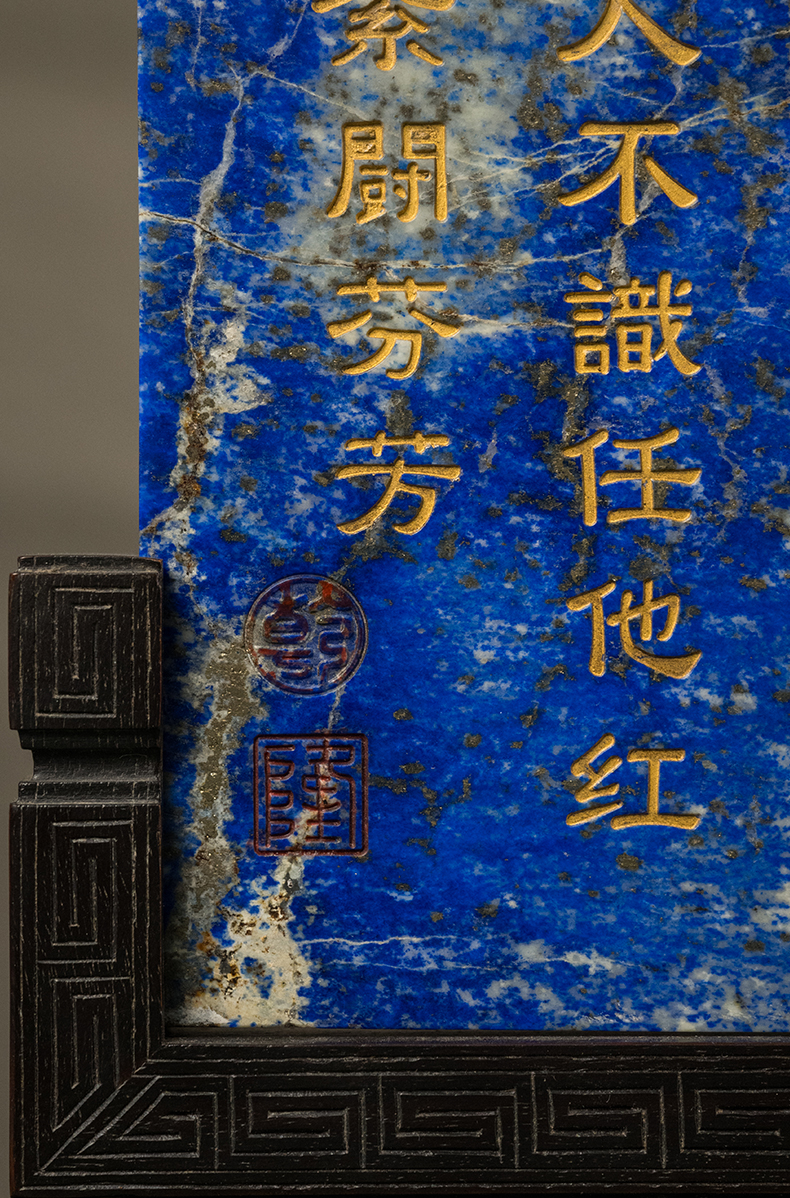 人不識任他红
紫闘芬芳
乾
隆